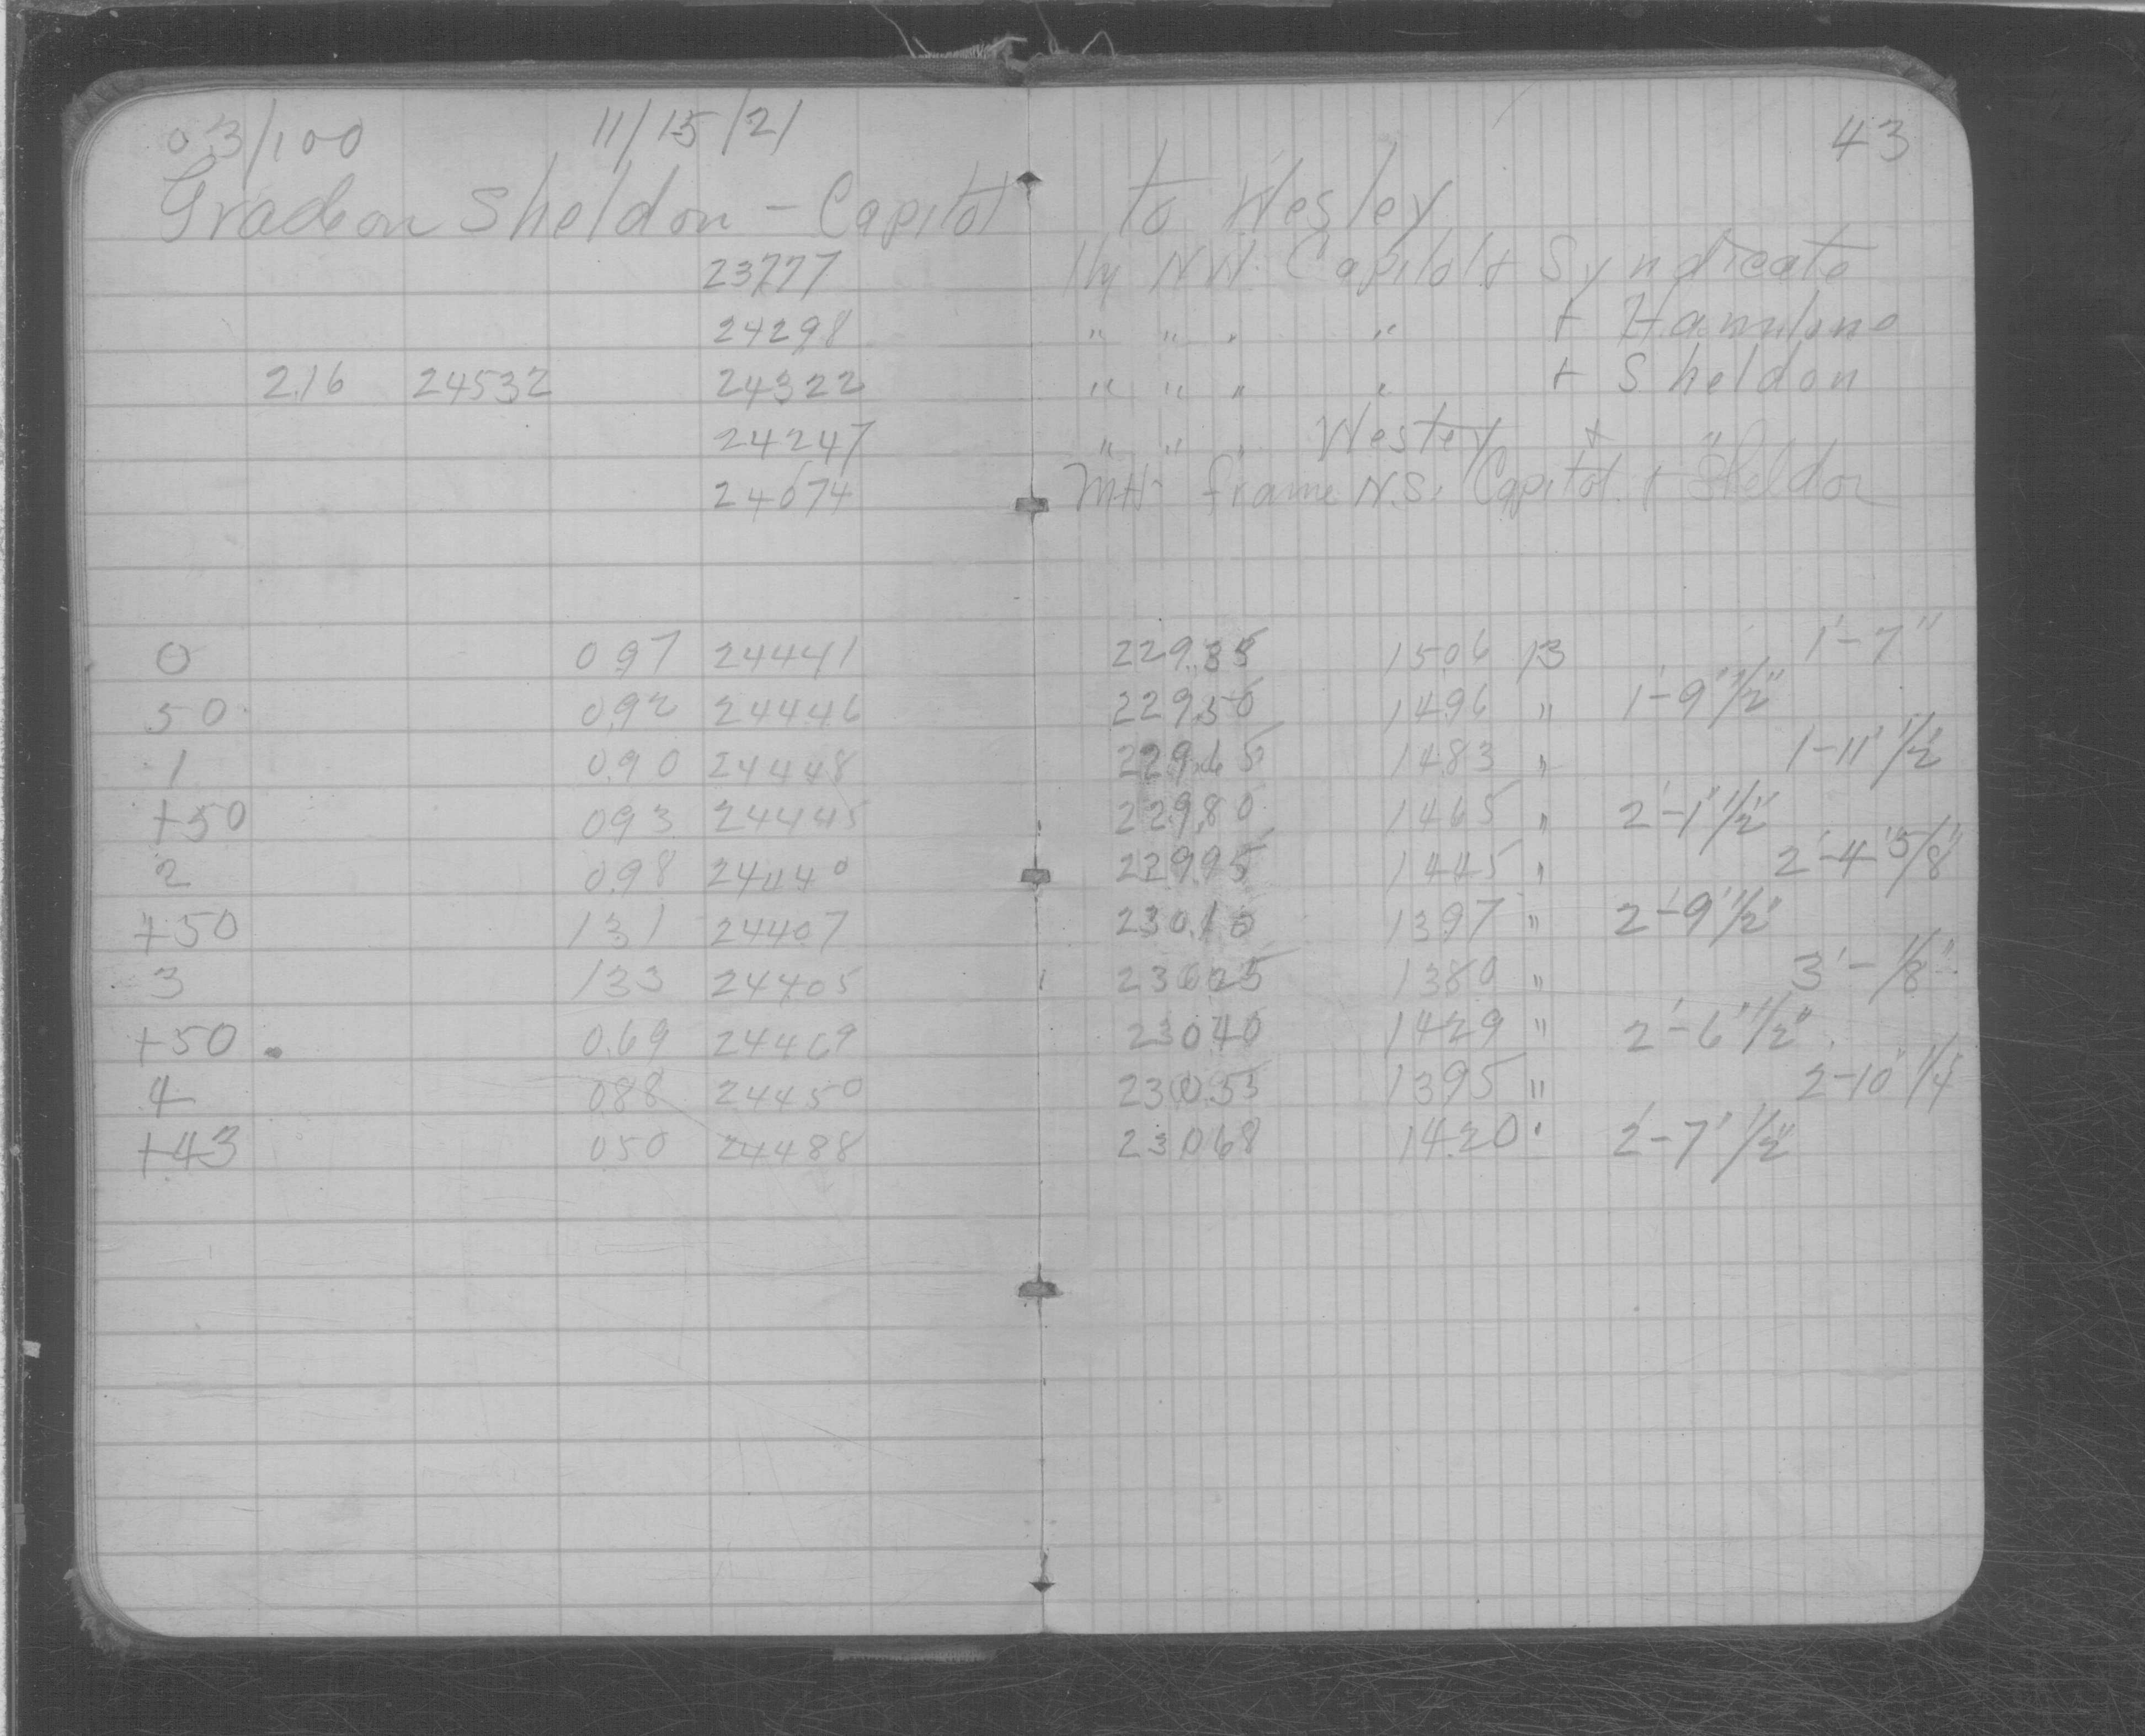 0.3/100 11/15/21 43
Grade on Sheldon - Capitol to Wesley
23777 Hy NW. Capitol + Syndicate
24298 " " " " + Hamilino
2.16 24532 24322 " " " " + Sheldon
24247 " " " Wesley + "
24074 MH frame N.S. Capitol + Sheldon
0 097 24441 229.35 1506 13 1'-7"
50 0.92 24446 229.50 1496 " 1'-9" 1/2"
1 0.90 24448 229.65 1483 " 1-11" 1/2
+50 093 24445 229.80 1465 " 2'-1" 1/2"
2 0.98 24440 229.95 1445 " 2'-4" 5/8"
+50 131 24407 230.10 1397 " 2'-9" 1/2"
3 133 24405 230.25 1380 " 3'-1/8"
+50 0.69 24469 23040 1429 " 2'-6" 1/2"
4 088 24450 230.55 1395 " 2-10" 1/4
+43 050 24488 23068 1420 " 2'-7" 1/2"